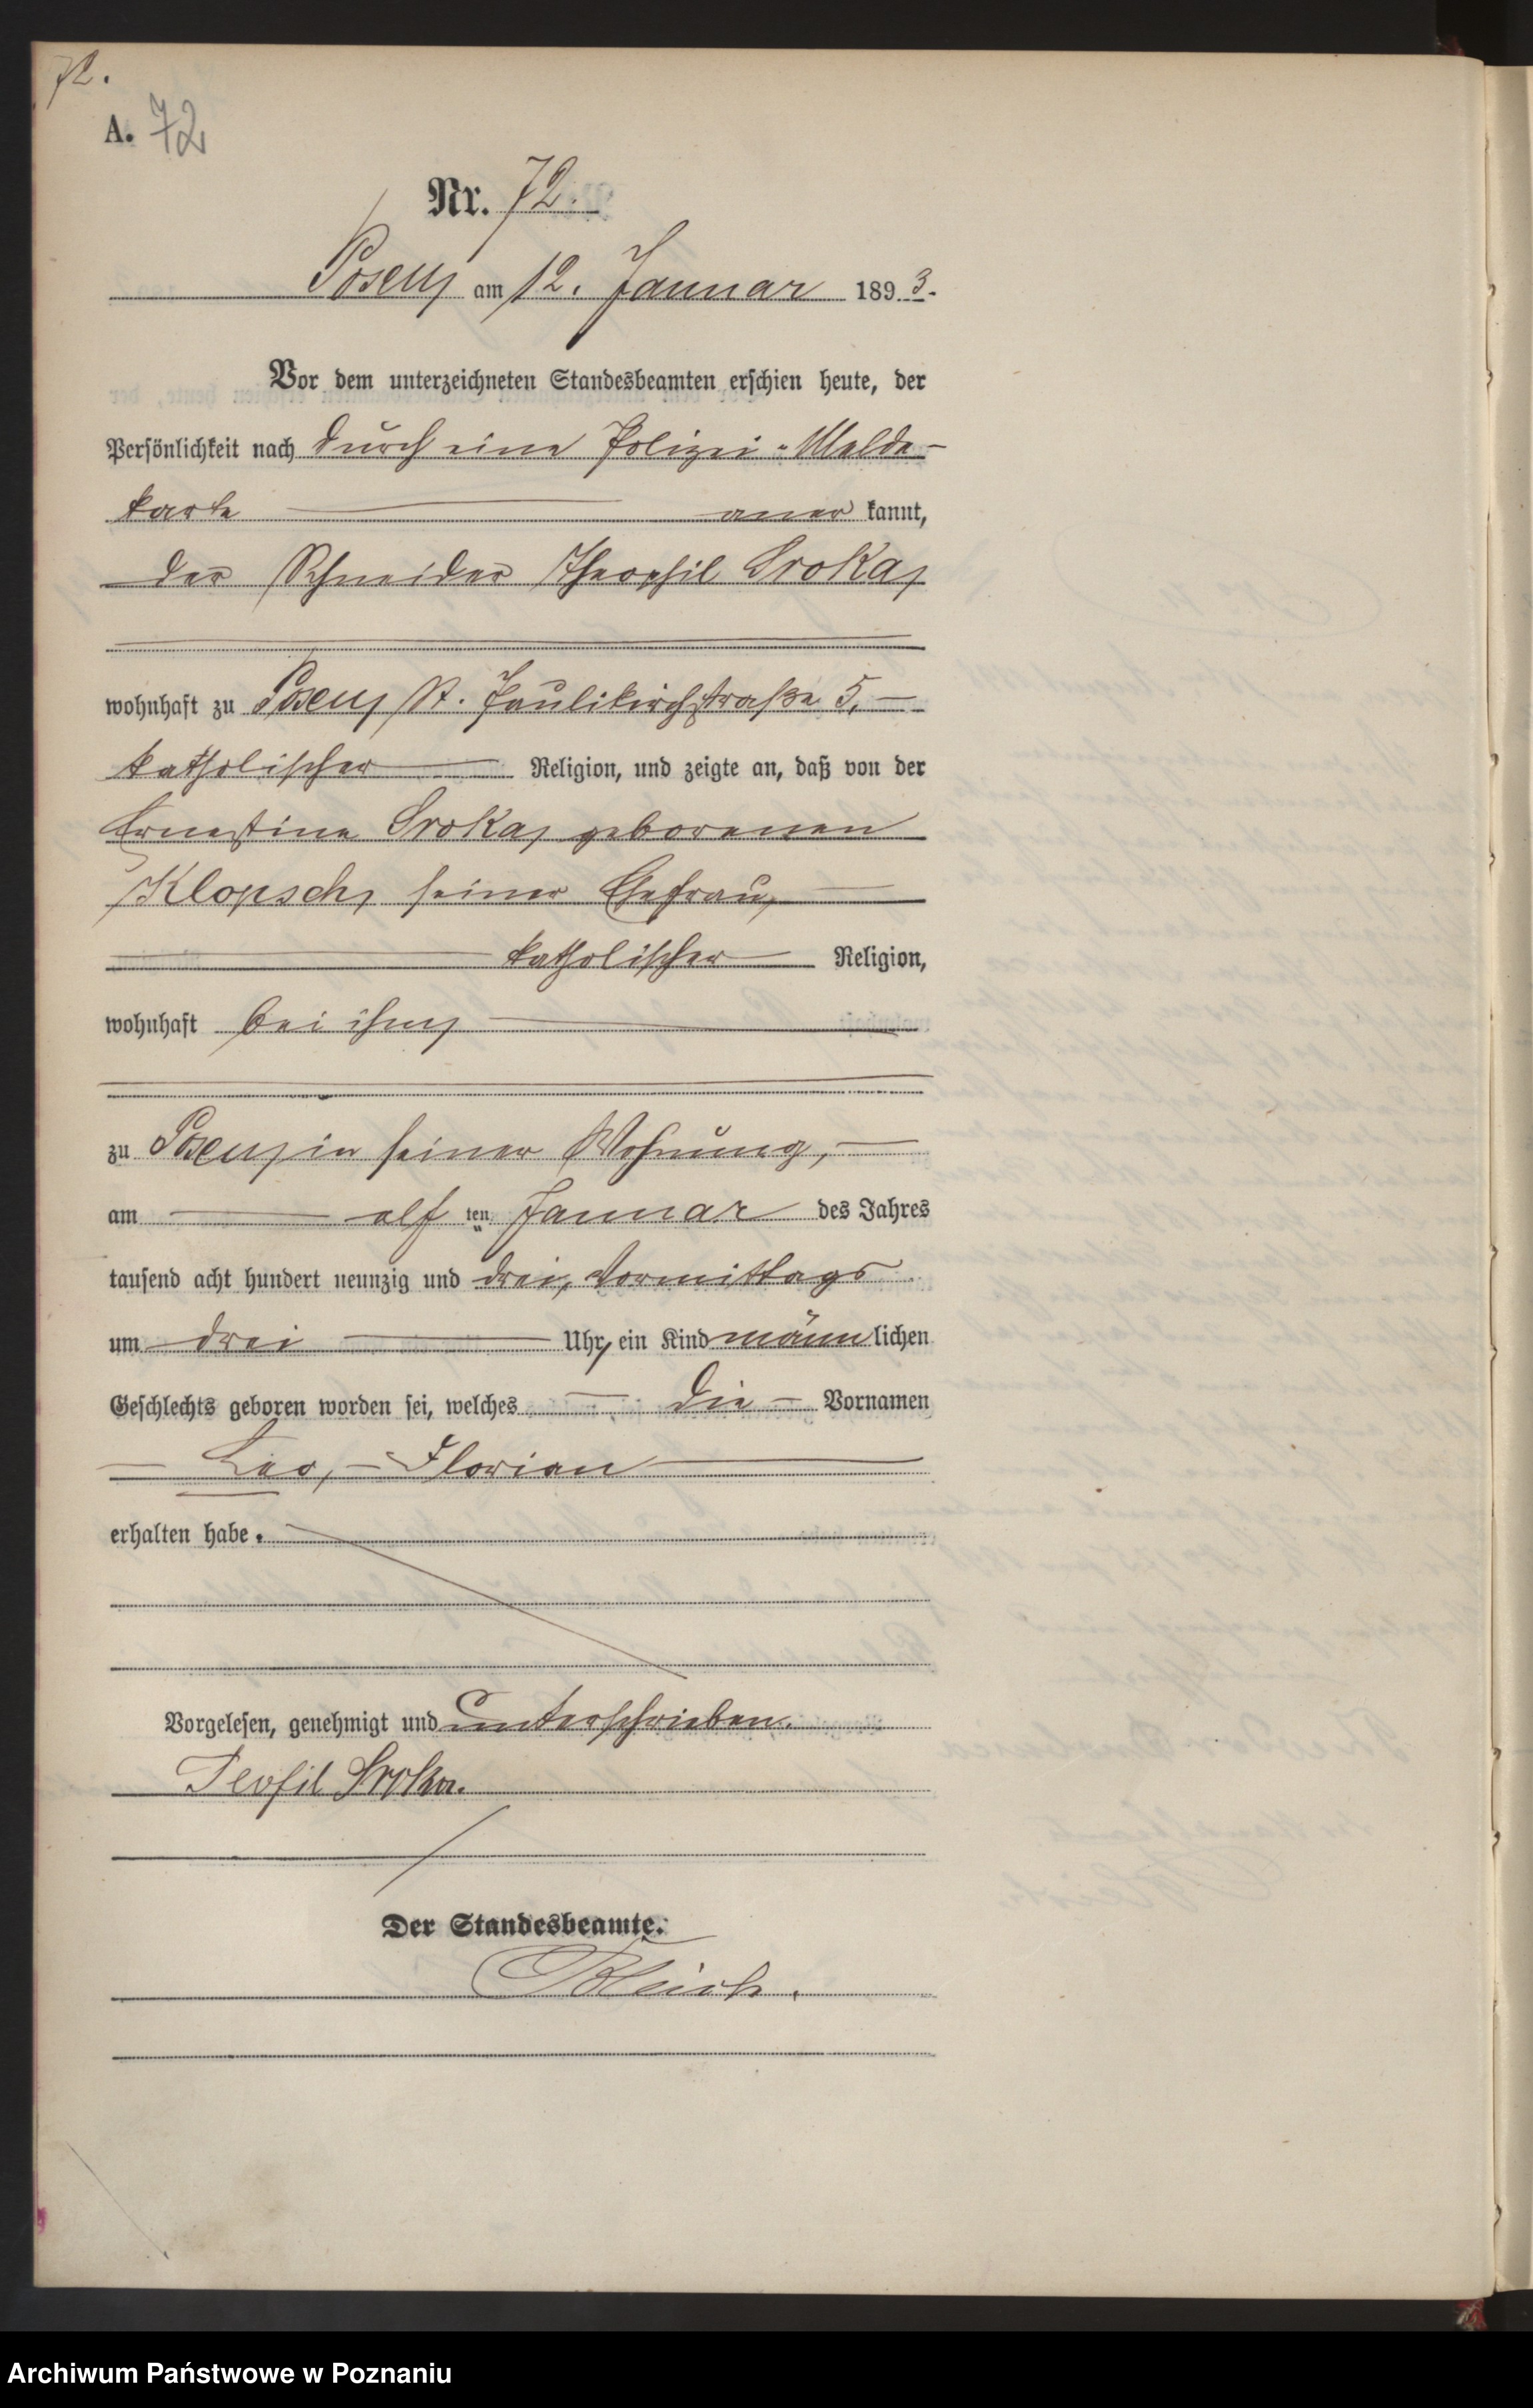 72.
A. 72
Nr. 72.
Posen, am 12. Januar 1893.
Vor dem unterzeichneten Standesbeamten erschien heute, der
Persönlichkeit nach durch eine Polizei-Melde-
karte aner kannt,
der Schneider Theophil Sroka,
wohnhaft zu Posen, St. Paulikirchstraße 5,
katholischer Religion, und zeigte an, daß von der
Ernestine Sroka, geborenen
Klopsch, seiner Ehefrau,
katholischer Religion,
wohnhaft bei ihm,
zu Posen, in seiner Wohnung,
am elf ten Januar des Jahres
tausend acht hundert neunzig und drei, Vormittags
um drei Uhr, ein Kind männlichen
Geschlechts geboren worden sei, welches die Vornamen
Leo, Florian
erhalten habe.
Vorgelesen, genehmigt und unterschrieben.
Teofil Sroka.
Der Standesbeamte.
Archiwum Państwowe w Poznaniu